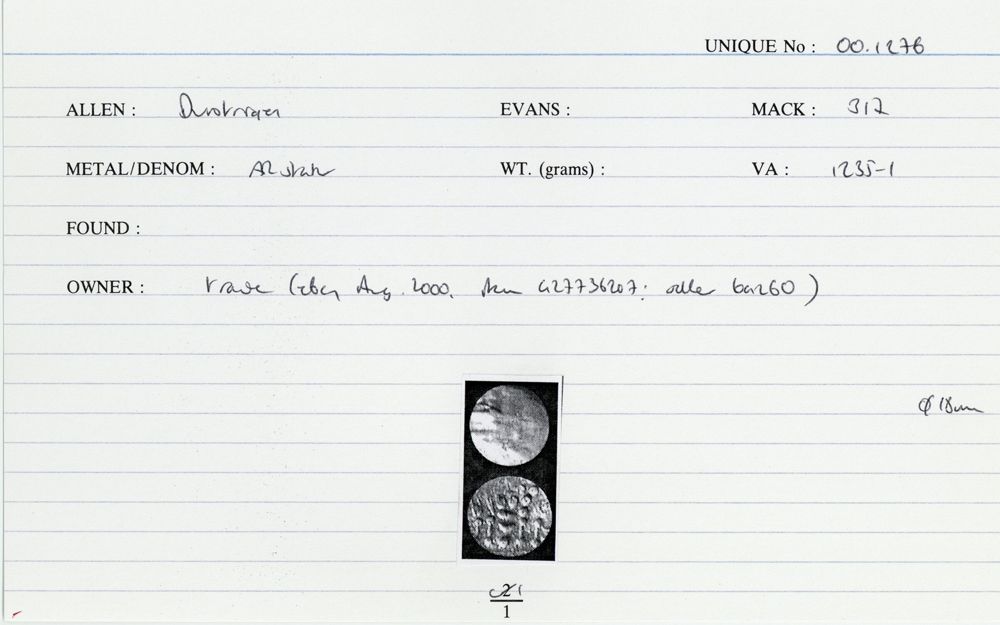 UNIQUE No : 00.1276
ALLEN : Durotrigan EVANS : MACK : 317
METAL/DENOM : AR stater WT. (grams) : VA : 1235-1
FOUND :
OWNER : trade (ebay Aug. 2000. item 427736207: seller bar260)
Ø 18mm
c21
1